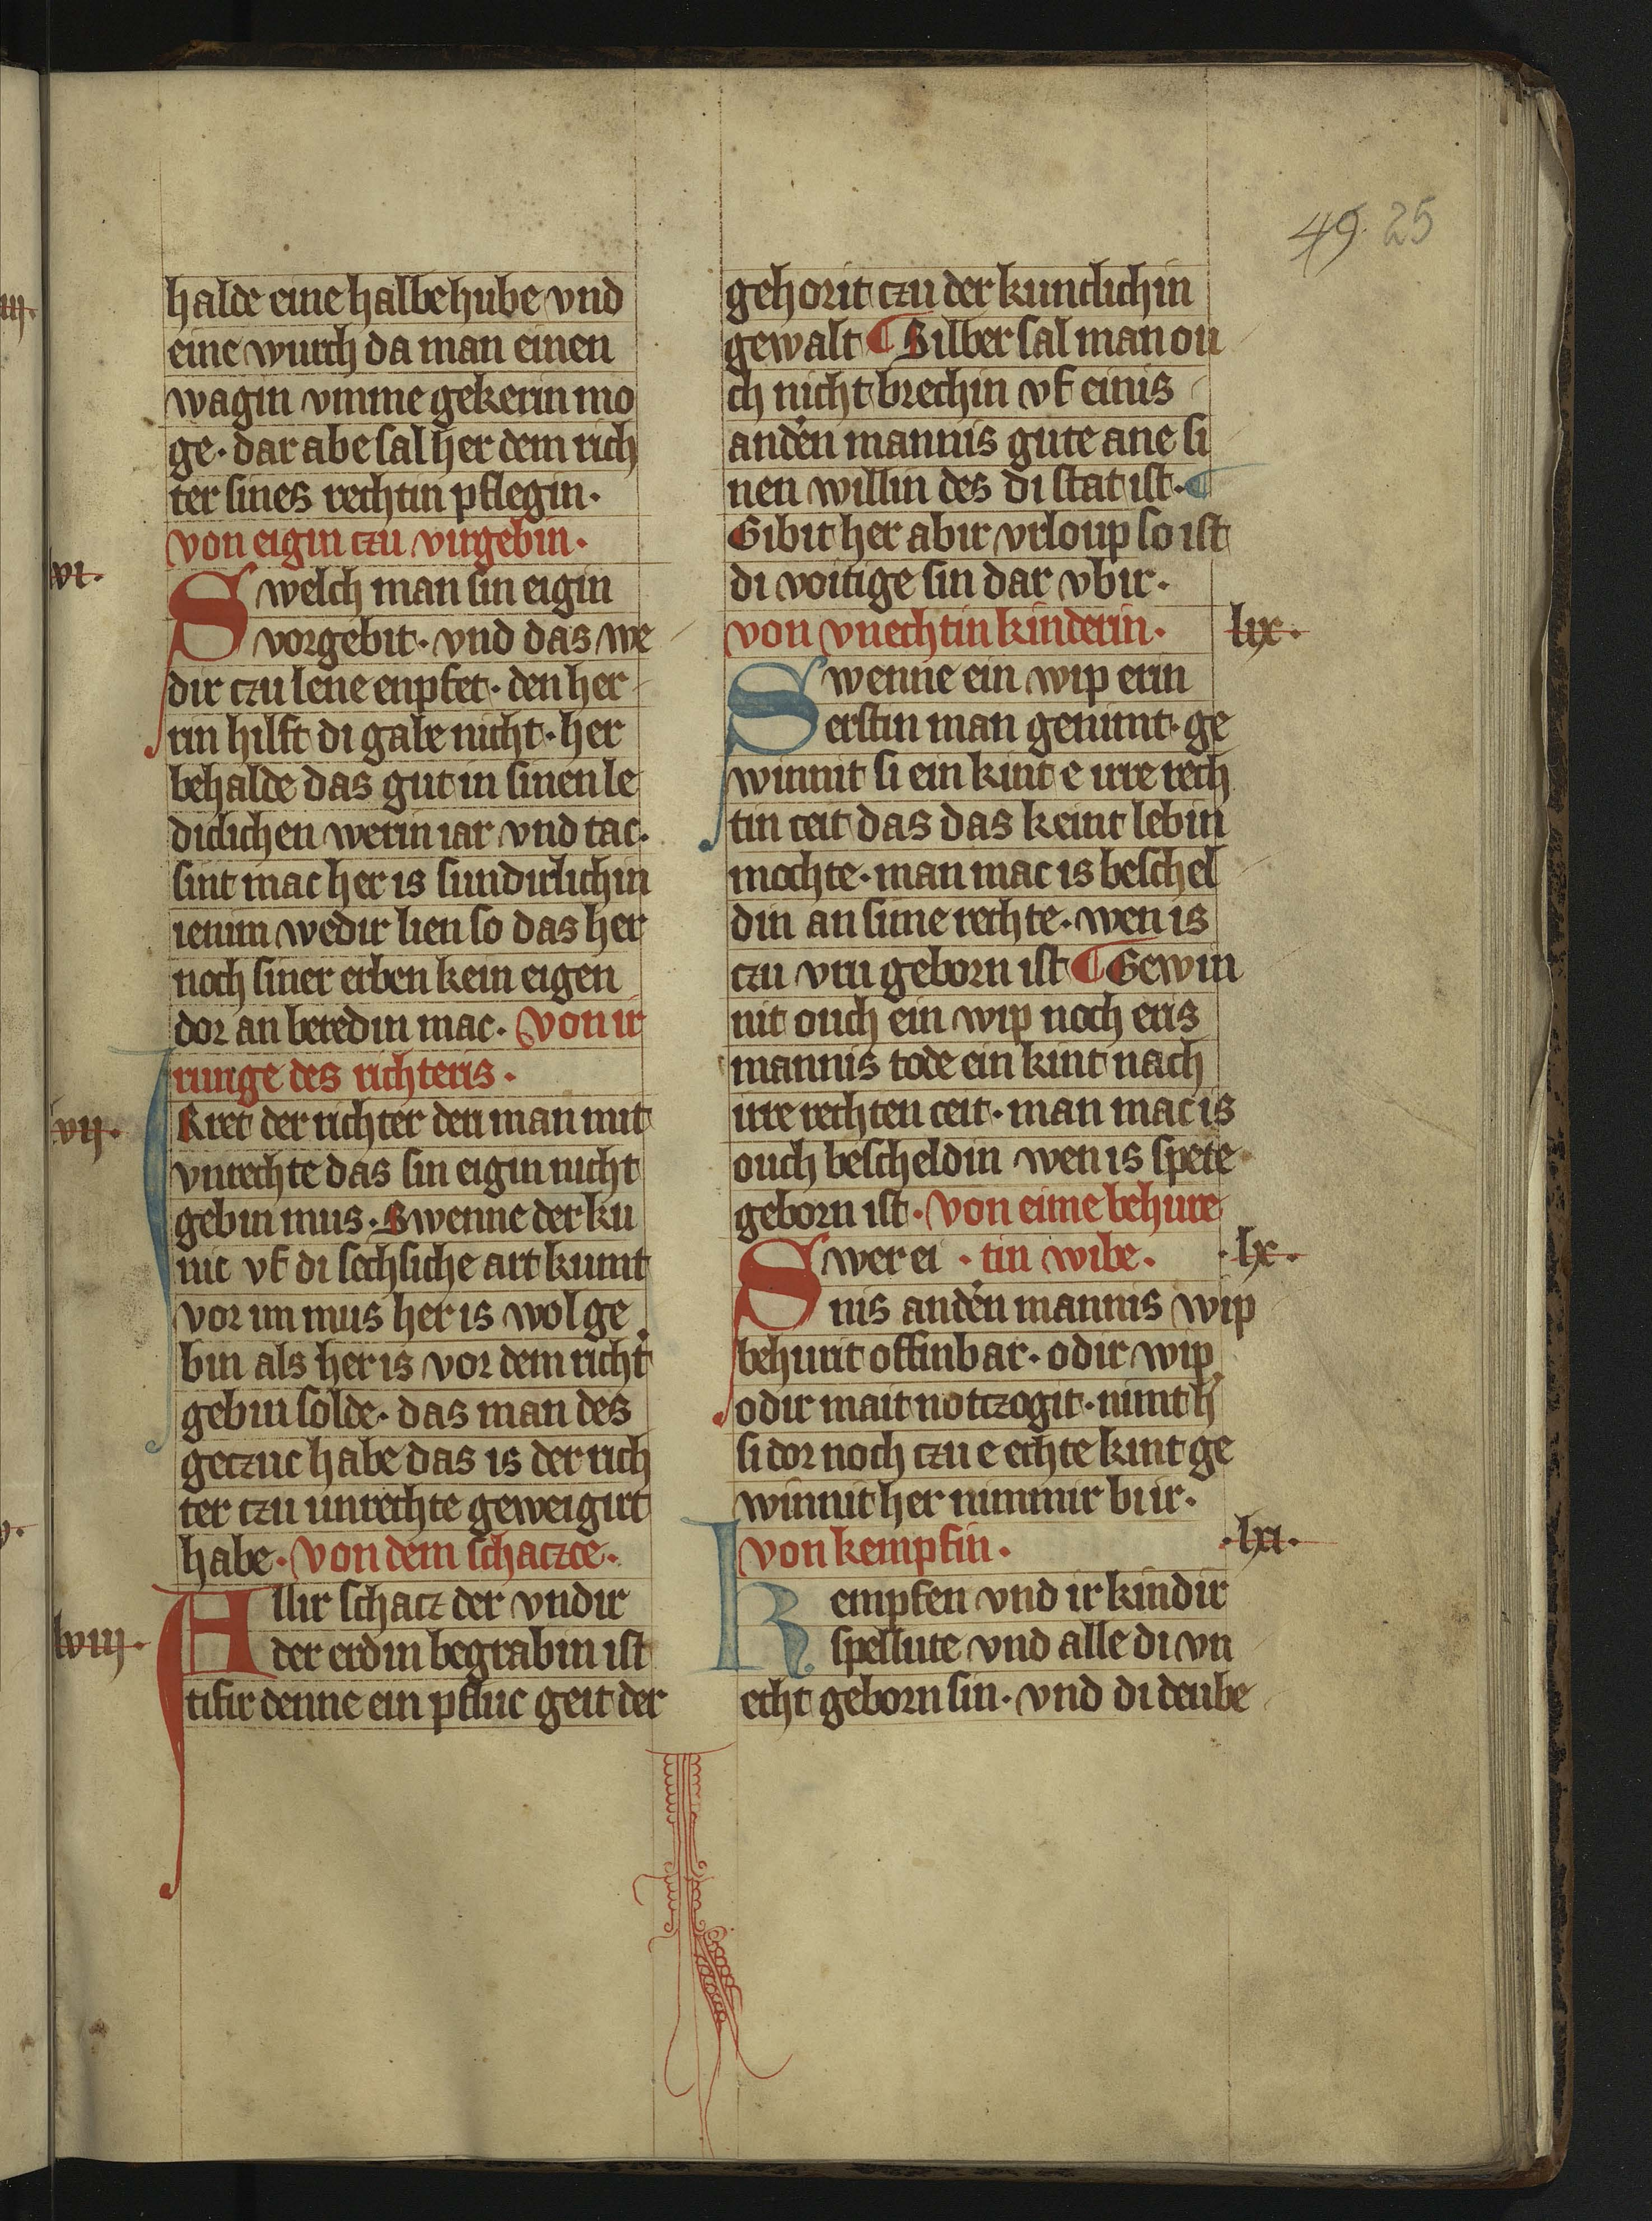 49. 25
halde eine halbe hube vnd
eine wurch da man einen
wagin vmme gekerin mo
ge· dar abe sal her dem rich
ter sines rechtin pflegin·
von eigin czu virgebin·
vi·
Swelch man sin eigin
vorgebit· vnd das we
dir czu lene enpfet· den her
rin hilft di gabe nicht· her
behalde das gut in sinen le
diclichen werin iar vnd tac·
sint mac her is sundirlichin
ienim wedir lien so das her
noch siner erben kein eigen
dor an beredin mac· von ir
runge des richteris·
vij·
IRret der richter den man mit
vnrechte das sin eigin nicht
gebin mus· Swenne der ku
nic vf di sechsiche art kumt
vor im mus her is wol ge
bin als her is vor dem richt
gebin solde· das man des
geczuc habe das is der rich
ter czu unrechte geweigirt
habe· von dem schacze·
lviij·
Allir schacz der vndir
der erdin begrabin ist
tifir denne ein pfluc geit der
gehorit czu der kunclichin
gewalt ¶ Silber sal man ou
ch nicht brechin vf einis
anden mannis gute ane si
nen willin des di stat ist· ¶
Gibit her abir vrloup so ist
di voitige sin dar vbir·
von vnechtin kinderin· lix·
Swenne ein wip erin
erstin man genimt· ge
winnit si ein kint e irre rech
tin ceit das das keint lebin
mochte· man mac is beschel
din an sime rechte· wen is
czu vru geborn ist ¶ Gewin
nit ouch ein wip noch eris
mannis tode ein kint nach
irre rechten ceit· man mac is
ouch bescheldin wen is spete
geborn ist· von eime behure
Swer ei · tin wibe· ·lx·
nis anden mannis wip
behurit offinbar· odir wip
odir mait notczogit· nimt h
si dor noch czu e echte kint ge
winnit her nimmir bi ir·
von kempfin· ·lxi·
Kempfen vnd ir kindir
spellute vnd alle di vn
echt geborn sin· vnd di deube